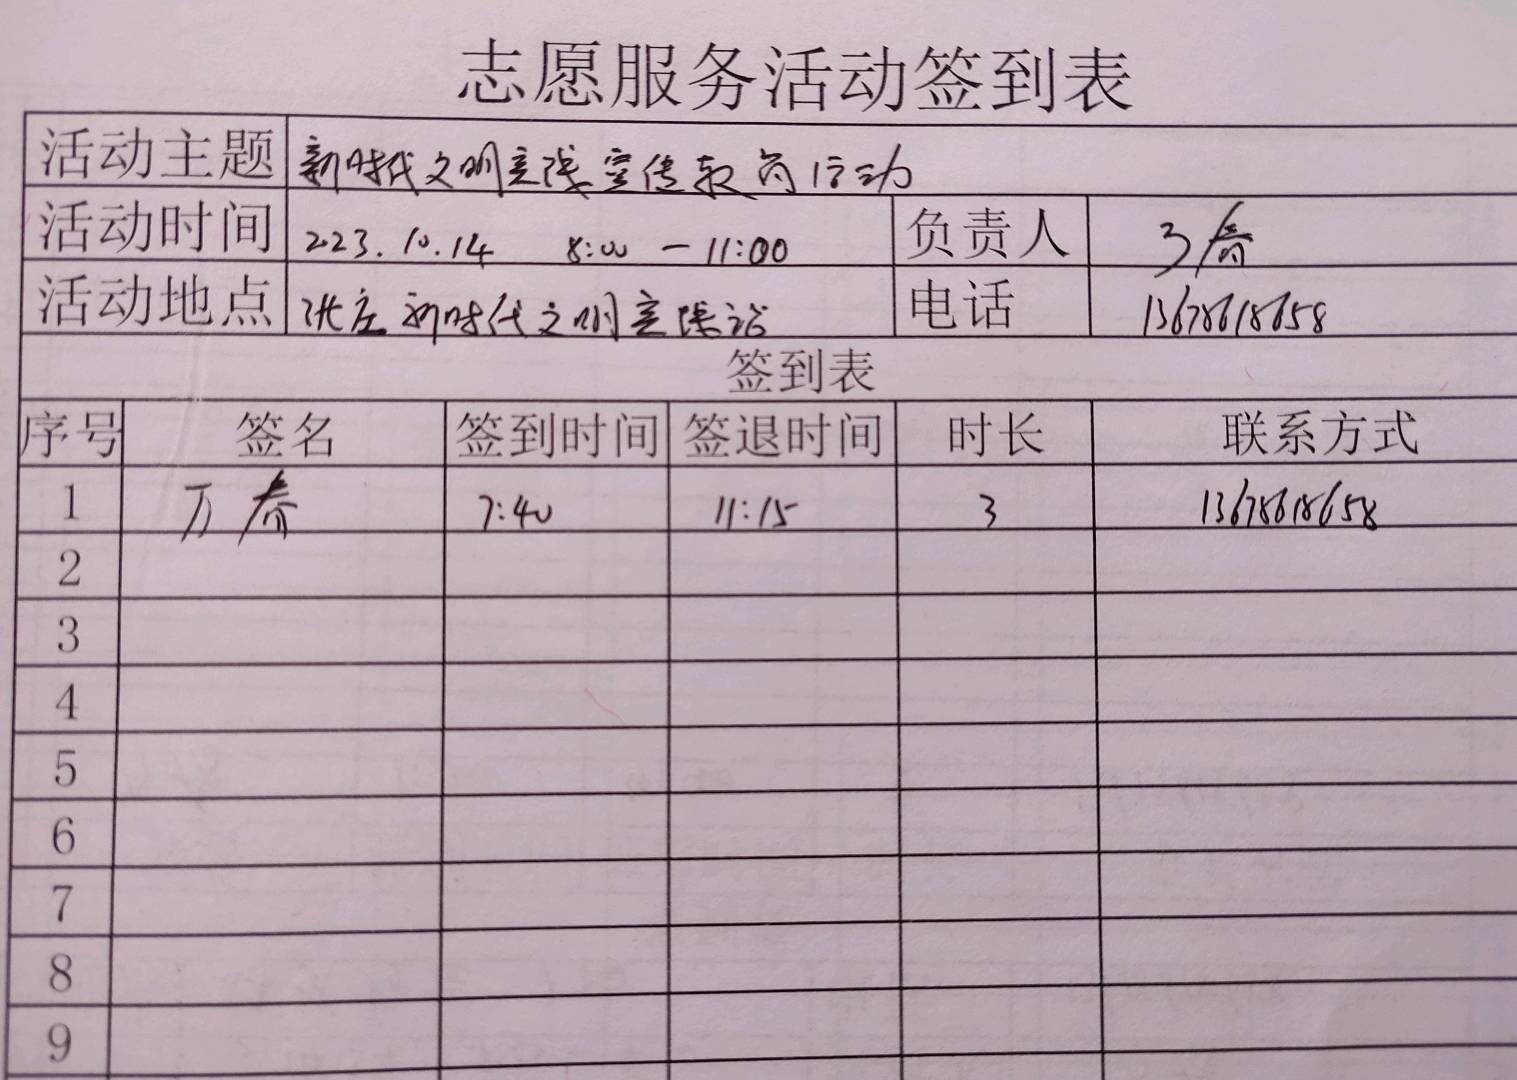 志愿服务活动签到表
活动主题 新时代文明实践宣传教育活动
活动时间 2023.10.14 8:00 — 11:00 负责人 万春
活动地点 张庄新时代文明实践站 电话 13678618658
签到表
序号 签名 签到时间 签退时间 时长 联系方式
1 万春 7:40 11:15 3 13678618658
2
3
4
5
6
7
8
9